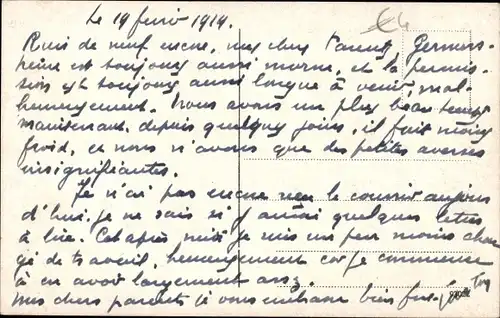 Le 19 février 1919.
Rien de neuf encore, mes chers Parents, Germers-
heim est toujours aussi morne, et la permis-
sion est toujours aussi longue à venir, mal-
heureusement. Nous avons un plus beau temps
maintenant, depuis quelques jours, il fait moins
froid, et nous n'avons que des petites averses
insignifiantes.
Je n'ai pas encore reçu le courrier aujour
d'hui. Je ne sais si j'aurai quelques lettres
à lire. Cet après midi je suis un peu moins char
gé de travail, heureusement car je commence
à en avoir largement assez.
Mes chers parents je vous embrasse bien fort